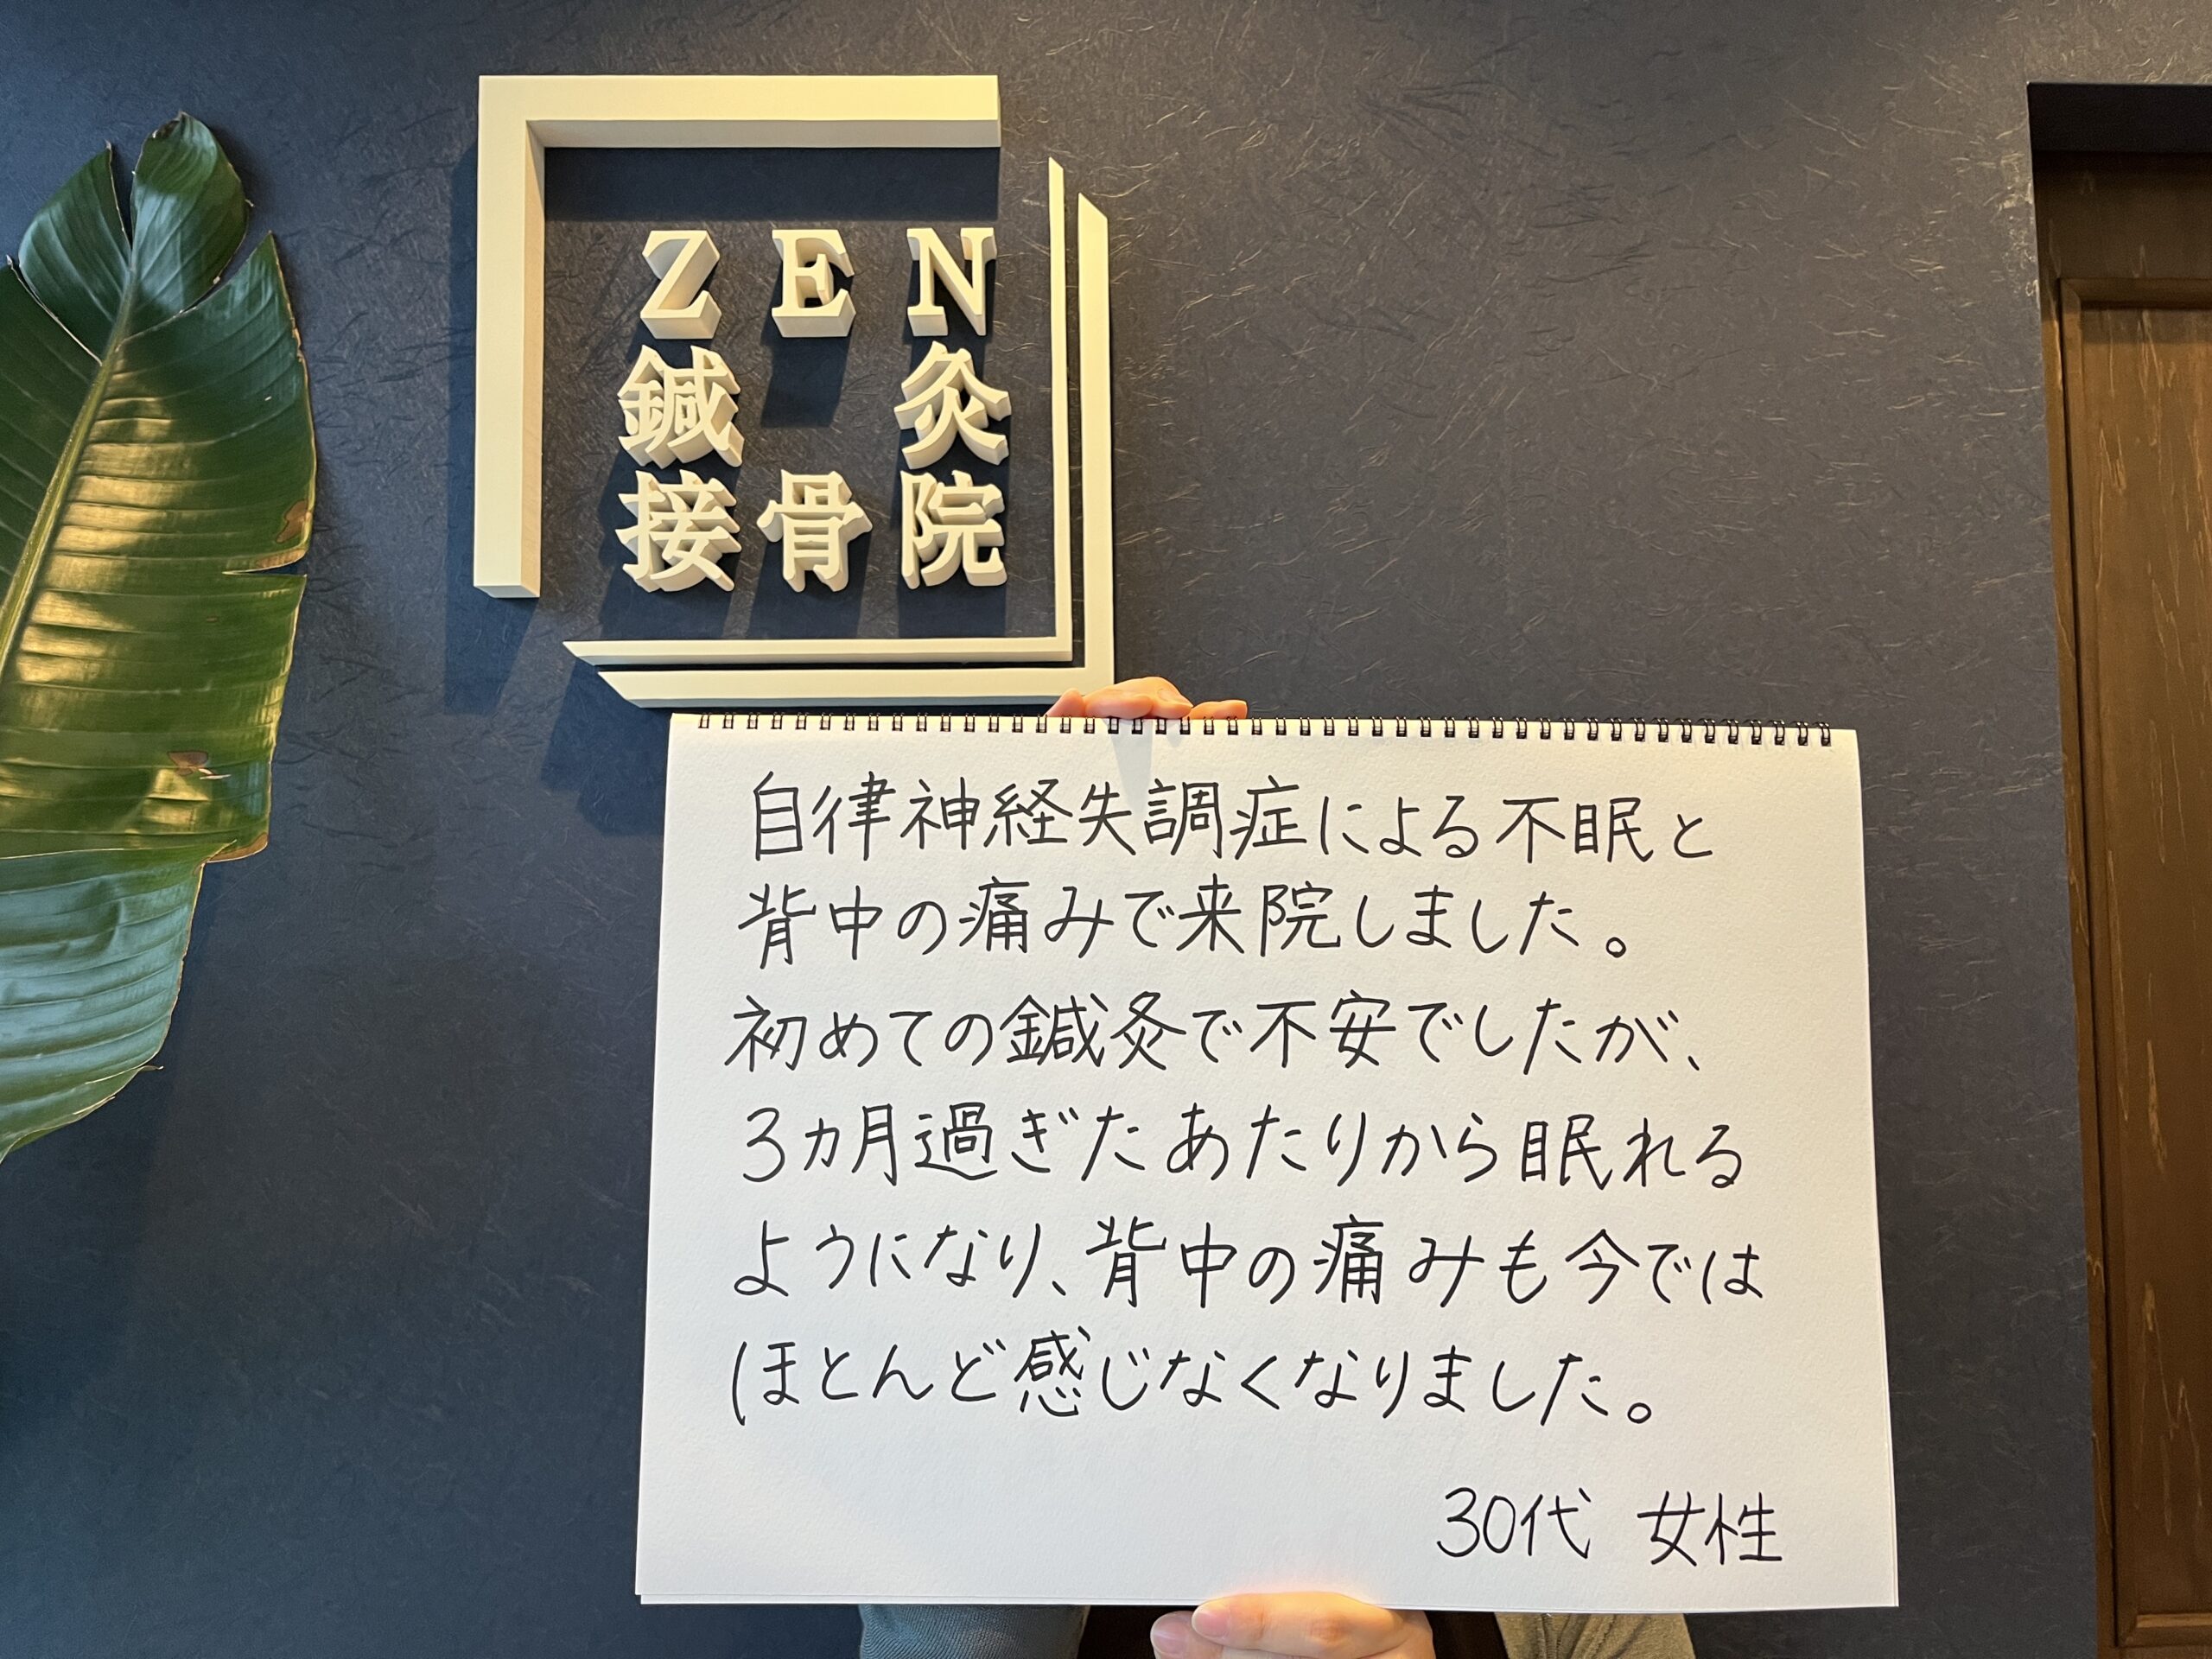 ZEN
鍼灸
接骨院
自律神経失調症による不眠と
背中の痛みで来院しました。
初めての鍼灸で不安でしたが、
3カ月過ぎたあたりから眠れる
ようになり、背中の痛みも今では
ほとんど感じなくなりました。
30代 女性